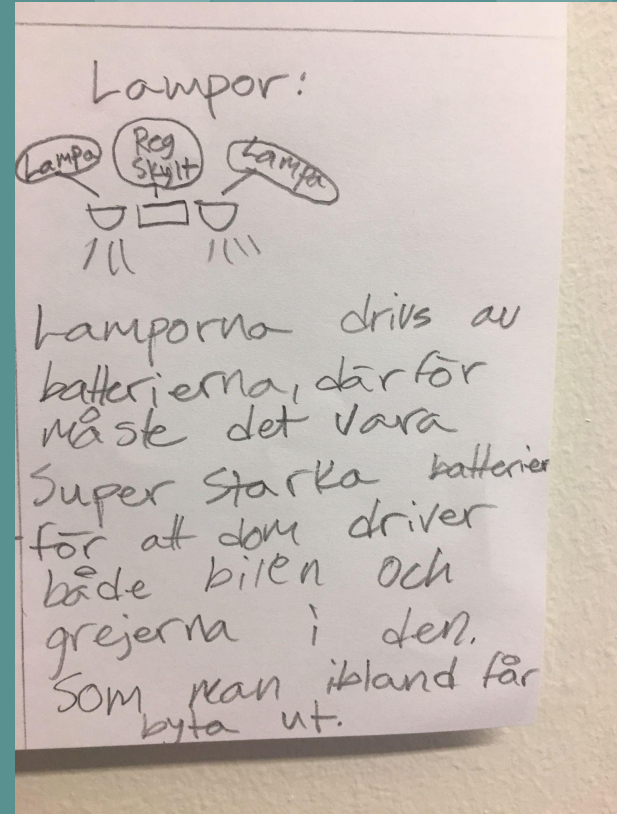 Lampor:
Lampa
Reg
Skylt
Lampa
Lamporna drivs av
batterierna, därför
måste det vara
Super starka batterier
för att dom driver
både bilen och
grejerna i den.
Som man ibland får
byta ut.